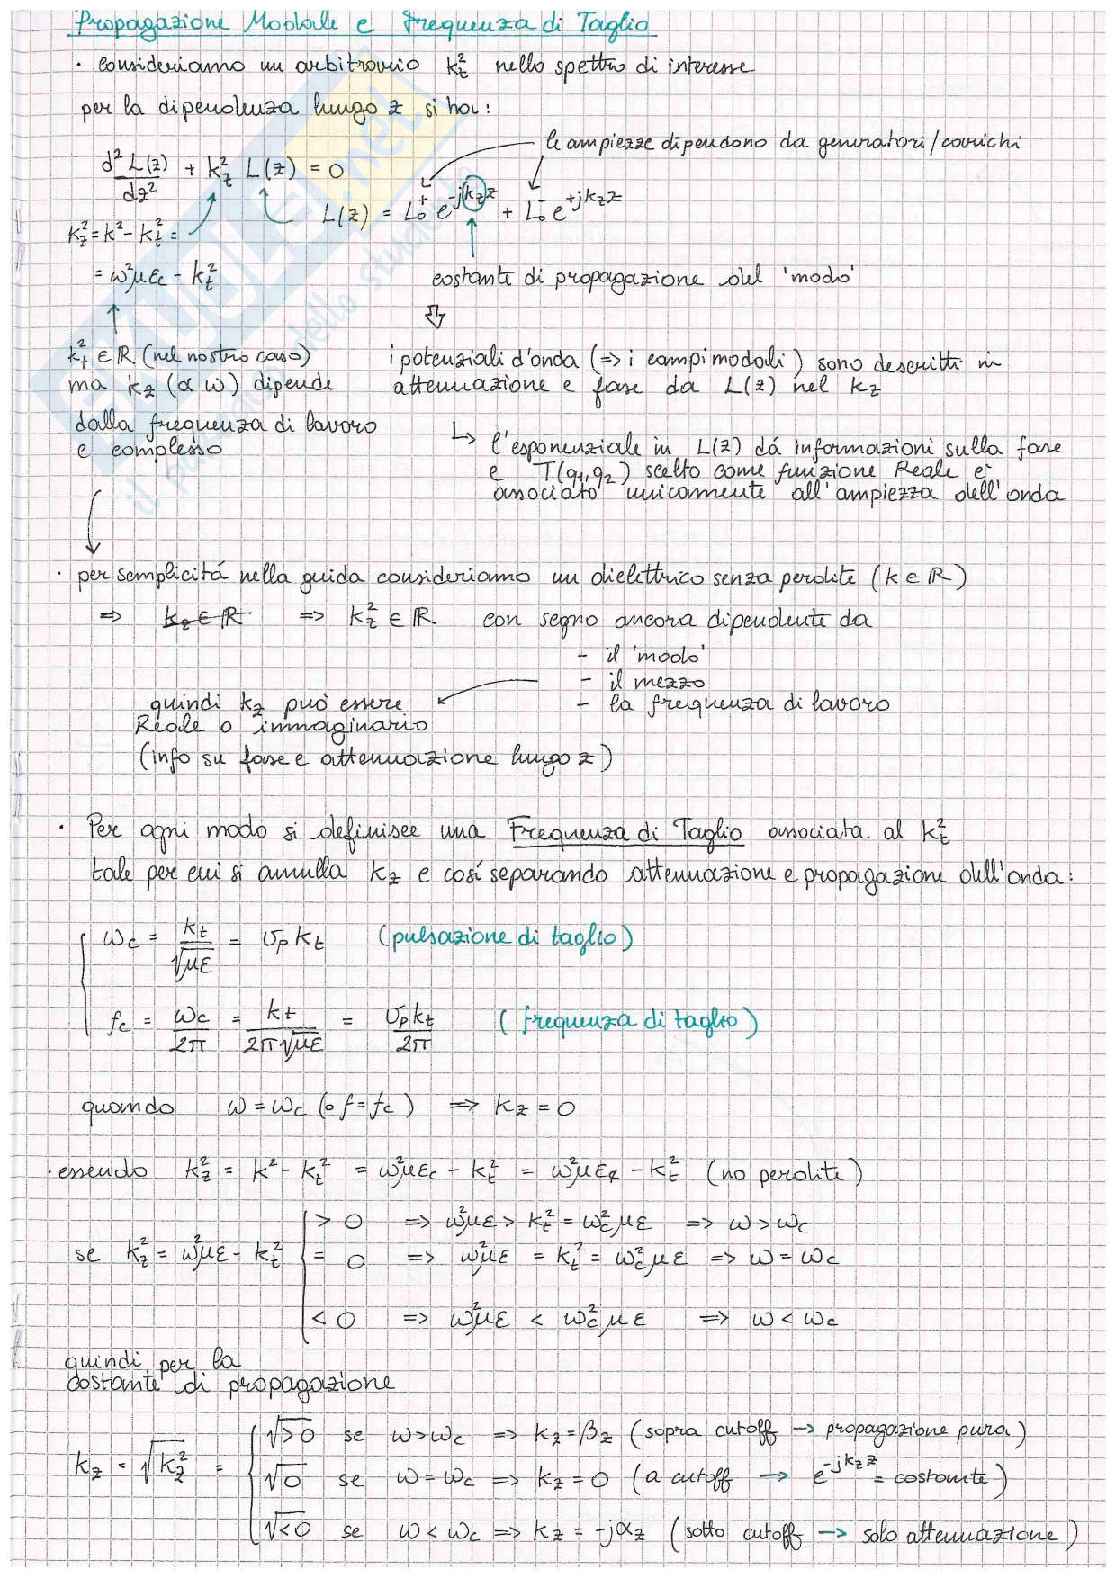 Propagazione Modale e Frequenza di Taglio
· consideriamo un arbitrario k_t^2 nello spettro di interesse
per la dipendenza lungo z si ha:
le ampiezze dipendono da generatori/carichi
d^2 L(z)/dz^2 + k_z^2 L(z) = 0
L(z) = L_0^+ e^{-jk_z z} + L_0^- e^{+jk_z z}
k_z^2 = k^2 - k_t^2 =
= ω^2 μ ε_c - k_t^2
costante di propagazione del 'modo'
k_t^2 ∈ ℝ (nel nostro caso)
ma k_z (α ω) dipende
dalla frequenza di lavoro
e complesso
i potenziali d'onda (=> i campi modali) sono descritti in
attenuazione e fase da L(z) nel k_z
↳ l'esponenziale in L(z) dá informazioni sulla fase
e T(q_1,q_2) scelto come funzione Reale é
associato unicamente all'ampiezza dell'onda
· per semplicitá nella guida consideriamo un dielettrico senza perdite (k ∈ ℝ)
=> k_z ∈ ℝ => k_z^2 ∈ ℝ con segno ancora dipendente da
- il 'modo'
- il mezzo
- la frequenza di lavoro
quindi k_z può essere
Reale o immaginario
(info su fase e attenuazione lungo z)
· Per ogni modo si definisce una Frequenza di Taglio associata al k_t^2
tale per cui si annulla k_z e cosí separando attenuazione e propagazione dell'onda:
ω_c = k_t/√με = v_p k_t (pulsazione di taglio)
f_c = ω_c/2π = k_t/2π√με = v_p k_t/2π (frequenza di taglio)
quando ω = ω_c (o f = f_c) => k_z = 0
· essendo k_z^2 = k^2 - k_t^2 = ω^2 μ ε_c - k_t^2 = ω^2 μ ε_R - k_t^2 (no perdite)
> 0 => ω^2 μ ε > k_t^2 = ω_c^2 μ ε => ω > ω_c
se k_z^2 = ω^2 μ ε - k_t^2 = 0 => ω^2 μ ε = k_t^2 = ω_c^2 μ ε => ω = ω_c
< 0 => ω^2 μ ε < ω_c^2 μ ε => ω < ω_c
quindi per la
costante di propagazione
√>0 se ω > ω_c => k_z = β_z (sopra cutoff -> propagazione pura)
k_z = √k_z^2 = √0 se ω = ω_c => k_z = 0 (a cutoff -> e^{-jk_z z} = costante)
√<0 se ω < ω_c => k_z = -jα_z (sotto cutoff -> solo attenuazione)